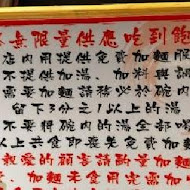 無限量供應吃到飽
店內用提供免費加麵服
不提供加湯
需要加麵請務必於碗內
留下3分之1以上的湯
不要將碗內的湯全部喝
以上共食即喪失免費加麵
親愛的顧客請酌量加麵
加麵未食用完